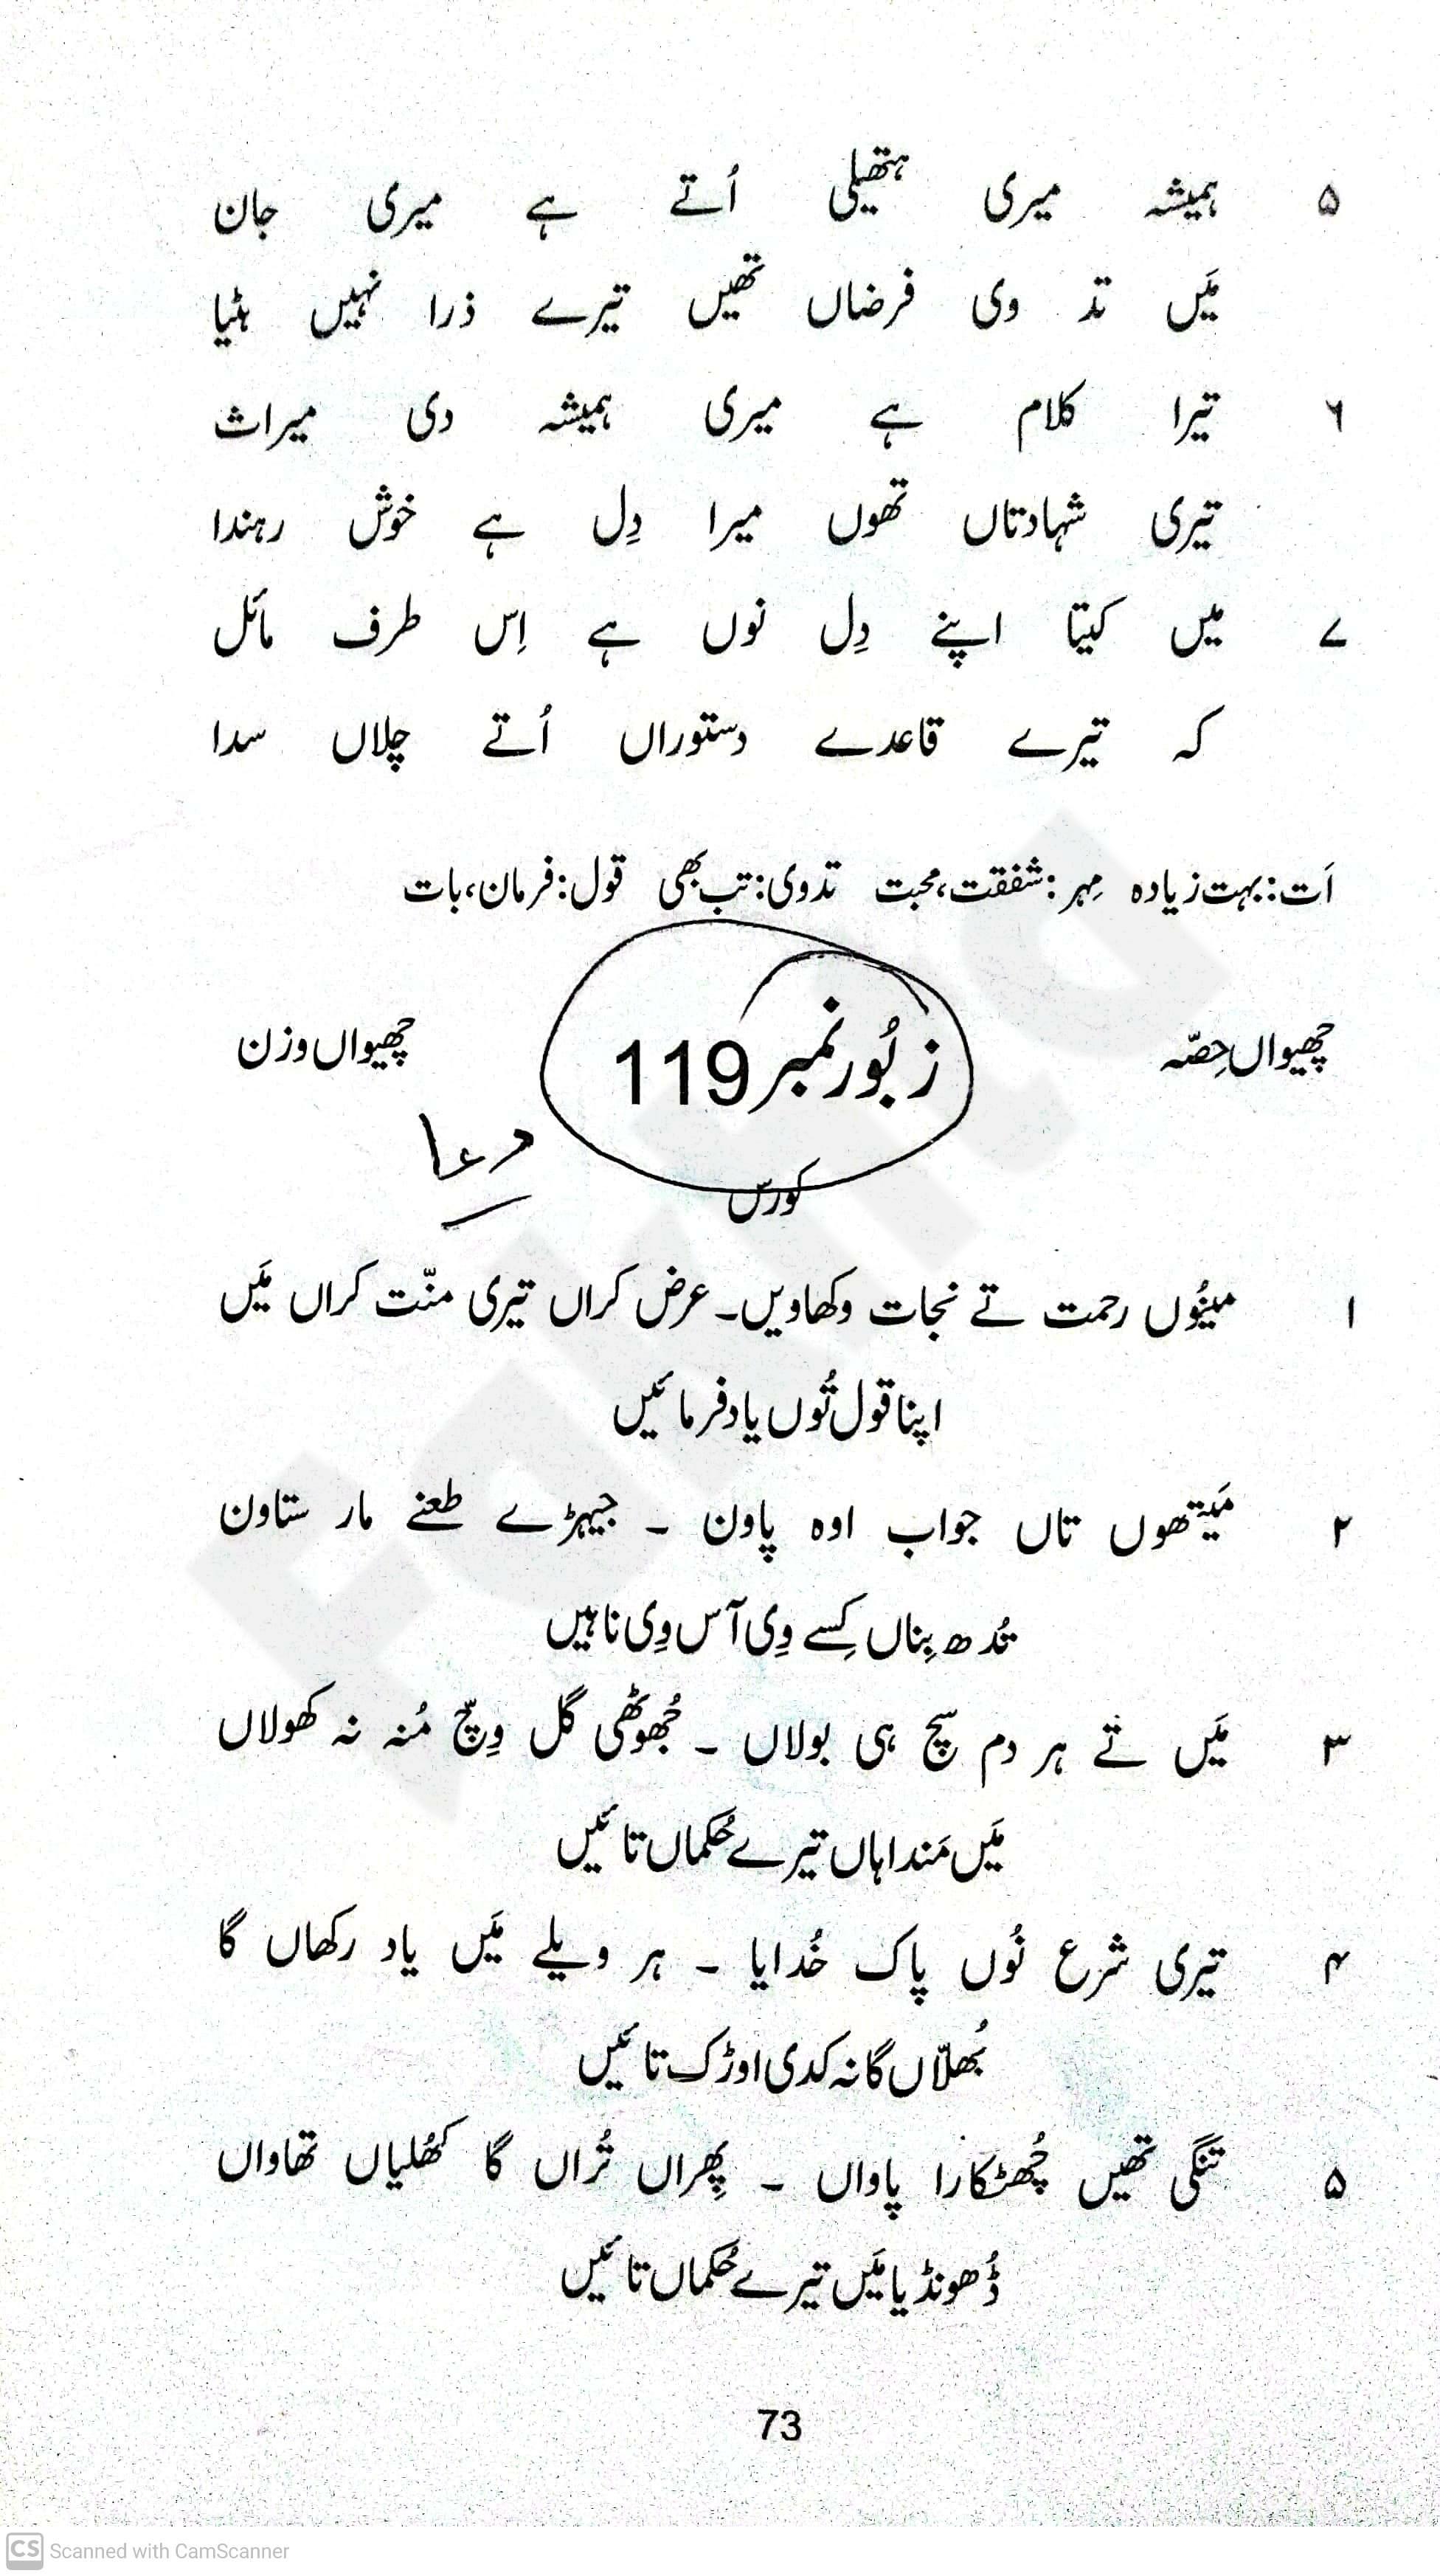 ۵ ہمیشہ میری ہتھیلی اُتے ہے میری جان
مَیں تد وی فرضاں تھیں تیرے ذرا نہیں ہٹیا
۶ تیرا کلام ہے میری ہمیشہ دی میراث
تیری شہادتاں تھوں میرا دِل ہے خوش رہندا
۷ میں کیتا اپنے دِل نوں ہے اِس طرف مائل
کہ تیرے قاعدے دستوراں اُتے چلاں سدا
اَت: بہت زیادہ مِہر: شفقت، محبت تدوی: تب بھی قول: فرمان، بات
چھیواں حِصّہ زبُور نمبر 119 چھیواں وزن
دعا
کورس
۱ مینُوں رحمت تے نجات وکھاویں۔ عرض کراں تیری منّت کراں مَیں
اپنا قول تُوں یاد فرمائیں
۲ مَیتھوں تاں جواب اوہ پاون ۔ جیہڑے طعنے مار ستاون
تُدھ بِناں کِسے وِی آس وِی ناہیں
۳ مَیں تے ہر دم سچ ہی بولاں ۔ جُھوٹھی گل وِچّ مُنہ نہ کھولاں
مَیں مَنداہاں تیرے حُکماں تائیں
۴ تیری شرع نُوں پاک خُدایا ۔ ہر ویلے مَیں یاد رکھاں گا
بُھلّاں گا نہ کدی اوڑک تائیں
۵ تنگی تھیں چُھٹکارا پاواں ۔ پِھراں تُراں گا کھُلیاں تھاواں
ڈُھونڈیا مَیں تیرے حُکماں تائیں
73
CS Scanned with CamScanner
Fakhta